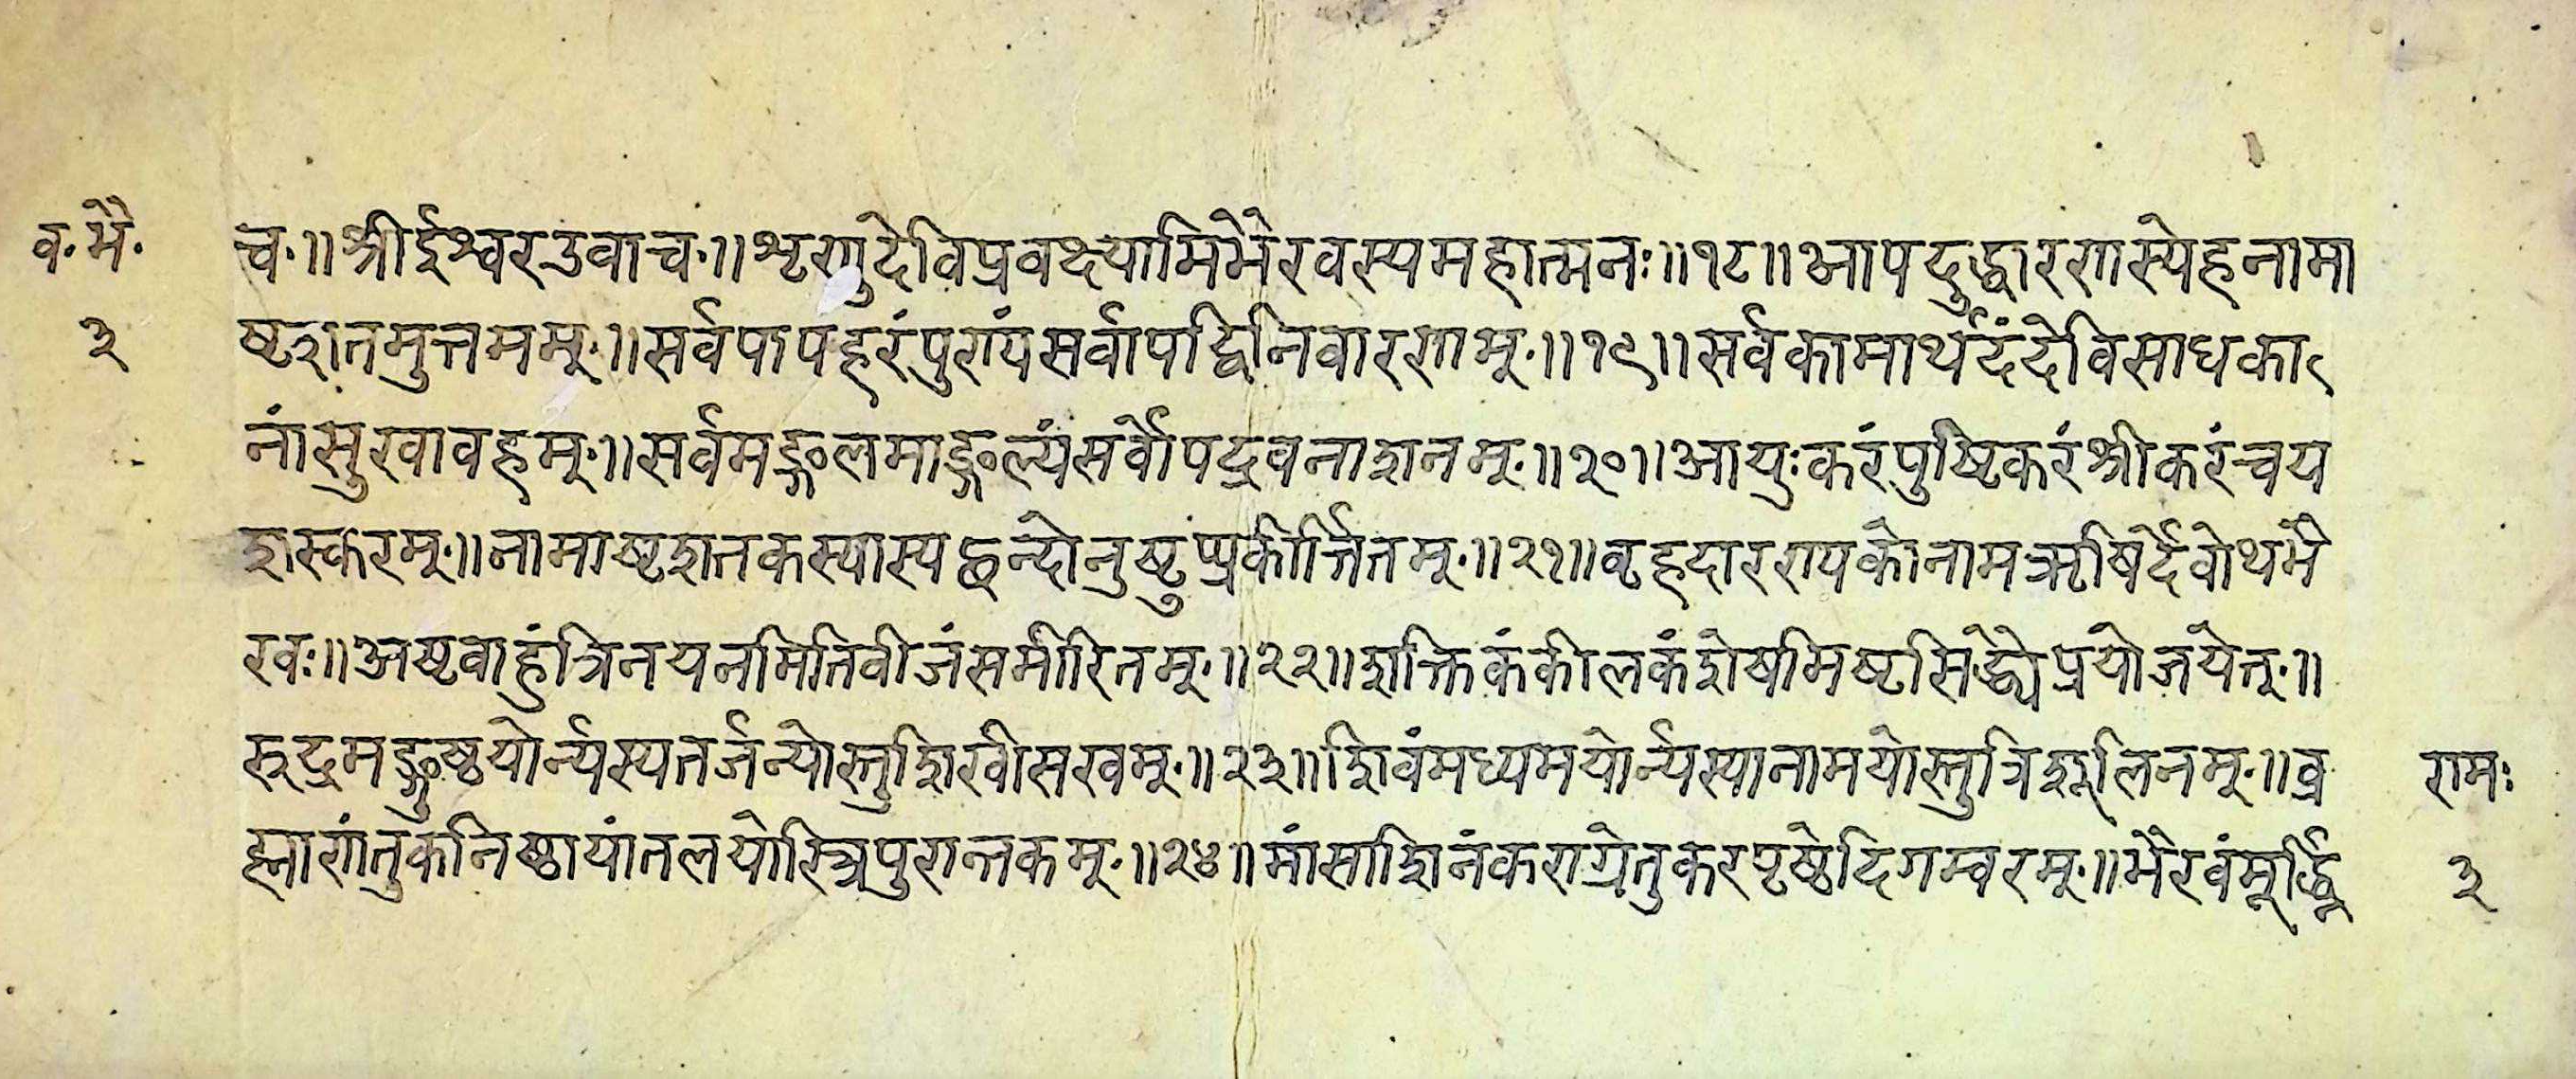 व॰ भै॰ च॰॥श्रीईश्वरउवाच॰॥शृणुदेविप्रवक्ष्यामिभैरवस्यमहात्मनः॥१८॥आपदुद्धारणस्येहनामा
३ ष्टशतमुत्तमम्॰॥सर्वपापहरंपुण्यंसर्वापद्विनिवारणम्॰॥१९॥सर्वकामार्थदंदेविसाधका
नांसुखावहम्॰॥सर्वमङ्गलमाङ्गल्यंसर्वोपद्रवनाशनम्॰॥२०॥आयुःकरंपुष्टिकरंश्रीकरंचय
शस्करम्॰॥नामाष्टशतकस्यास्यछन्दोनुष्टुप्प्रकीर्त्तितम्॰॥२१॥वृहदारण्यकोनामऋषिर्देवोथभै
रवः॥अष्टवाहुंत्रिनयनमितिवीजंसमीरितम्॰॥२२॥शक्तिकंकीलकंशेषमिष्टसिद्ध्येप्रयोजयेत्॰॥
रुद्रमङ्गुष्ठयोर्न्यस्यतर्जन्योस्तुशिखीसखम्॰॥२३॥शिवंमध्यमयोर्न्यस्यानामयोस्तुत्रिशूलिनम्॰॥व्र रामः
ह्माणंतुकनिष्ठायांतलयोस्त्रिपुरान्तकम्॰॥२४॥मांसाशिनंकराग्रेतुकरपृष्ठेदिगम्वरम्॰॥भैरवंमूर्द्ध्नि ३